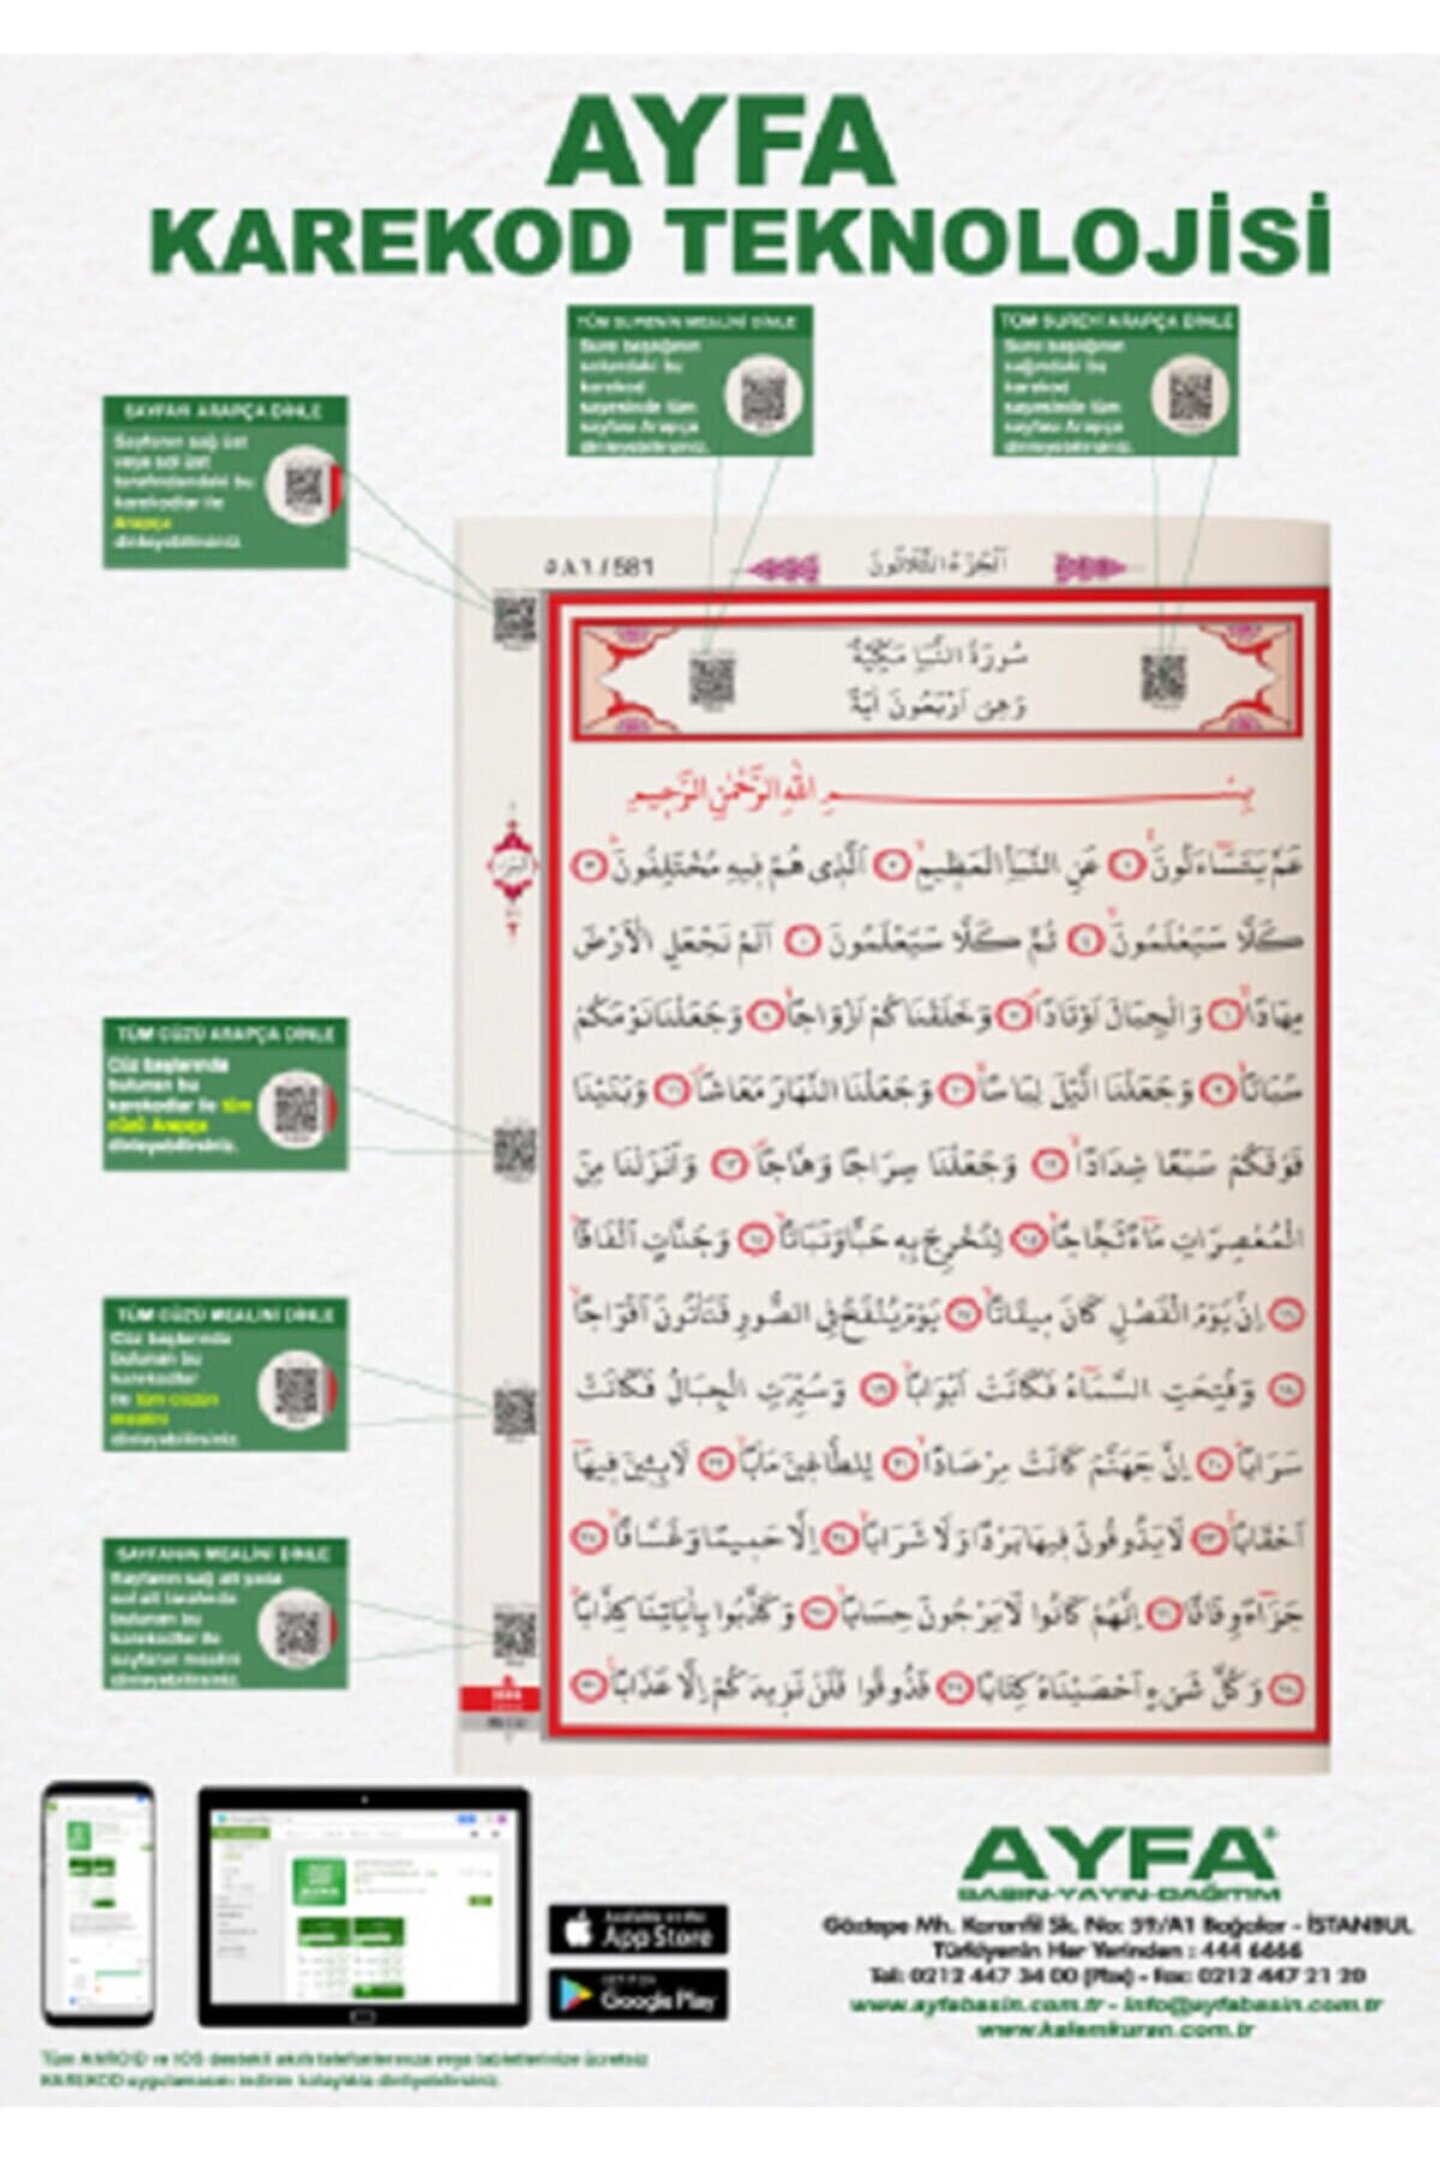 AYFA
KAREKOD TEKNOLOJİSİ
TÜM SURENİN MEALİNİ DİNLE
Sure başlığının
solundaki bu
karekod
sayesinde tüm
sayfayı Arapça
dinleyebilirsiniz.
TÜM SUREYİ ARAPÇA DİNLE
Sure başlığının
sağındaki bu
karekod
sayesinde tüm
sayfayı Arapça
dinleyebilirsiniz.
SAYFAYI ARAPÇA DİNLE
Sayfanın sağ üst
veya sol üst
tarafındaki bu
karekodlar ile
Arapça
dinleyebilirsiniz.
٥٨١ / 581
اَلْجُزْءُ الثَّلَاثُونَ
سُورَةُ النَّبَأِ مَكِّيَّةٌ
وَهِىَ اَرْبَعُونَ اٰيَةً
بِسْمِ اللّٰهِ الرَّحْمٰنِ الرَّحِيمِ
عَمَّ يَتَسَاءَلُونَ ١ عَنِ النَّبَأِ الْعَظِيمِ ٢ اَلَّذِى هُمْ فِيهِ مُخْتَلِفُونَ ٣
كَلَّا سَيَعْلَمُونَ ٤ ثُمَّ كَلَّا سَيَعْلَمُونَ ٥ اَلَمْ نَجْعَلِ الْاَرْضَ
مِهَادًا ٦ وَالْجِبَالَ اَوْتَادًا ٧ وَخَلَقْنَاكُمْ اَزْوَاجًا ٨ وَجَعَلْنَا نَوْمَكُمْ
سُبَاتًا ٩ وَجَعَلْنَا الَّيْلَ لِبَاسًا ١٠ وَجَعَلْنَا النَّهَارَ مَعَاشًا ١١ وَبَنَيْنَا
فَوْقَكُمْ سَبْعًا شِدَادًا ١٢ وَجَعَلْنَا سِرَاجًا وَهَّاجًا ١٣ وَاَنْزَلْنَا مِنَ
الْمُعْصِرَاتِ مَاءً ثَجَّاجًا ١٤ لِنُخْرِجَ بِهِ حَبًّا وَنَبَاتًا ١٥ وَجَنَّاتٍ اَلْفَافًا
١٦ اِنَّ يَوْمَ الْفَصْلِ كَانَ مِيقَاتًا ١٧ يَوْمَ يُنْفَخُ فِى الصُّورِ فَتَأْتُونَ اَفْوَاجًا
١٨ وَفُتِحَتِ السَّمَاءُ فَكَانَتْ اَبْوَابًا ١٩ وَسُيِّرَتِ الْجِبَالُ فَكَانَتْ
سَرَابًا ٢٠ اِنَّ جَهَنَّمَ كَانَتْ مِرْصَادًا ٢١ لِلطَّاغِينَ مَاٰبًا ٢٢ لَابِثِينَ فِيهَا
اَحْقَابًا ٢٣ لَا يَذُوقُونَ فِيهَا بَرْدًا وَلَا شَرَابًا ٢٤ اِلَّا حَمِيمًا وَغَسَّاقًا ٢٥
جَزَاءً وِفَاقًا ٢٦ اِنَّهُمْ كَانُوا لَا يَرْجُونَ حِسَابًا ٢٧ وَكَذَّبُوا بِاٰيَاتِنَا كِذَّابًا
٢٨ وَكُلَّ شَىْءٍ اَحْصَيْنَاهُ كِتَابًا ٢٩ فَذُوقُوا فَلَنْ نَزِيدَكُمْ اِلَّا عَذَابًا ٣٠
TÜM CÜZÜ ARAPÇA DİNLE
Cüz başlarında
bulunan bu
karekodlar ile tüm
cüzü Arapça
dinleyebilirsiniz.
TÜM CÜZÜ MEALİNİ DİNLE
Cüz başlarında
bulunan bu
karekodlar
ile tüm cüzün
mealini
dinleyebilirsiniz.
SAYFANIN MEALİNİ DİNLE
Sayfanın sağ alt yada
sol alt tarafında
bulunan bu
karekodlar ile
sayfanın mealini
dinleyebilirsiniz.
App Store
Google Play
AYFA
BASIN-YAYIN-DAĞITIM
Göztepe Mh. Karanfil Sk. No: 59/A1 Bağcılar - İSTANBUL
Türkiyenin Her Yerinden : 444 6666
Tel: 0212 447 34 00 (Pbx) - Fax: 0212 447 21 20
www.ayfabasin.com.tr - info@ayfabasin.com.tr
www.kalemkuran.com.tr
Tüm ANROID ve IOS destekli akıllı telefonlarınıza veya tabletlerinize ücretsiz
KAREKOD uygulamasını indirin kolaylıkla dinliyebilirsiniz.